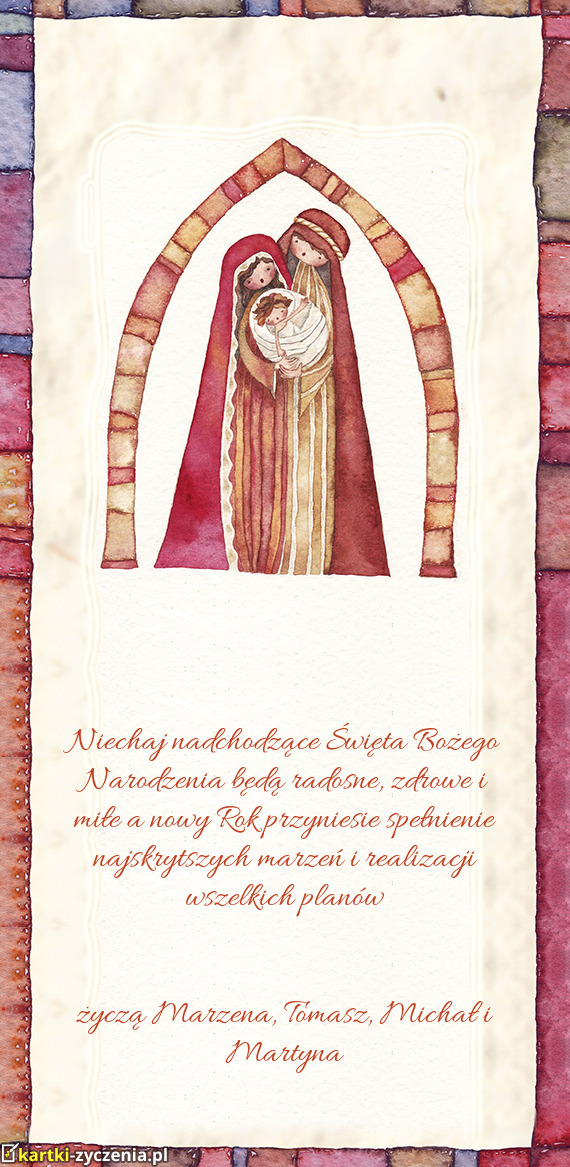 Niechaj nadchodzące Święta Bożego
Narodzenia będą radosne, zdrowe i
miłe a nowy Rok przyniesie spełnienie
najskrytszych marzeń i realizacji
wszelkich planów
życzą Marzena, Tomasz, Michał i
Martyna
kartki-zyczenia.pl